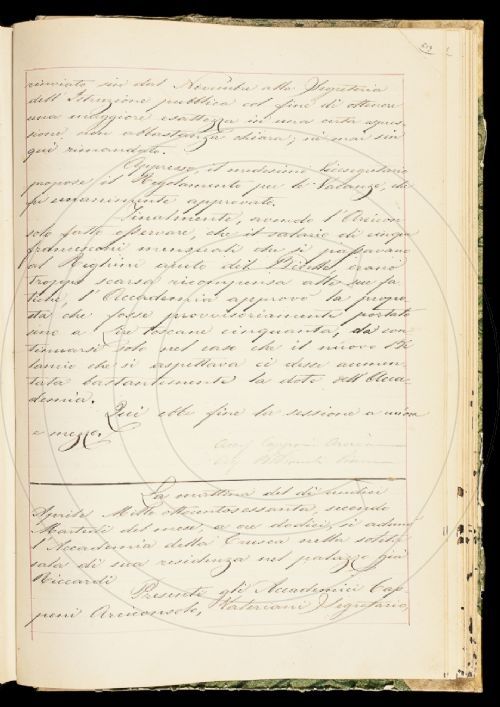 rinviato sin dal Novembre alla Segreteria
dell'Istruzione pubblica col fine di ottenere
una maggiore esattezza in una certa espres-
sione non abbastanza chiara; nè mai sin
qui rimandato.
Appresso, il medesimo Vicesegretario
propose il Regolamento per le Vacanze, che
fu unanimemente approvato.
Finalmente, avendo l'Arcicon-
solo fatto osservare, che il salario di cinque
francesconi mensuali che si passavano
al Righini aiuto del Bidello, erano
troppo scarsa ricompensa alle sue fa-
tiche, l'Accademia approvò la propo-
sta che fosse provvisoriamente portato
sino a Lire toscane cinquanta, da con-
tinuarsi solo nel caso che il nuovo Bi-
lancio che si aspettava ci desse aumen-
tata bastantemente la dote dell'Acca-
demia.
Quì ebbe fine la sessione a un'ora
e mezzo.
La mattina del dì undici
Aprile Mille ottocentosessanta, secondo
Martedì del mese, a ore dodici, si adunò
l'Accademia della Crusca nella solita
sala di sua residenza nel palazzo già
Riccardi
Presenti gli Accademici Cap-
poni Arciconsolo, Segretario,